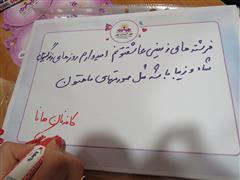 فرشته های زمینی عاشقتونم امیدوارم روزهای زندگیتون
شاد و زیبا باشه مثل صورتهای ماهتون
کادرتان مانا